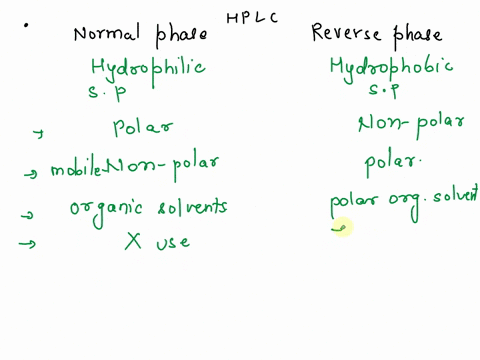 HPLC
Normal phase Reverse phase
Hydrophilic Hydrophobic
S.P S.P
→ Polar Non-polar
→ mobile Non-polar polar.
→ organic solvents polar org. solvent
→ X use →